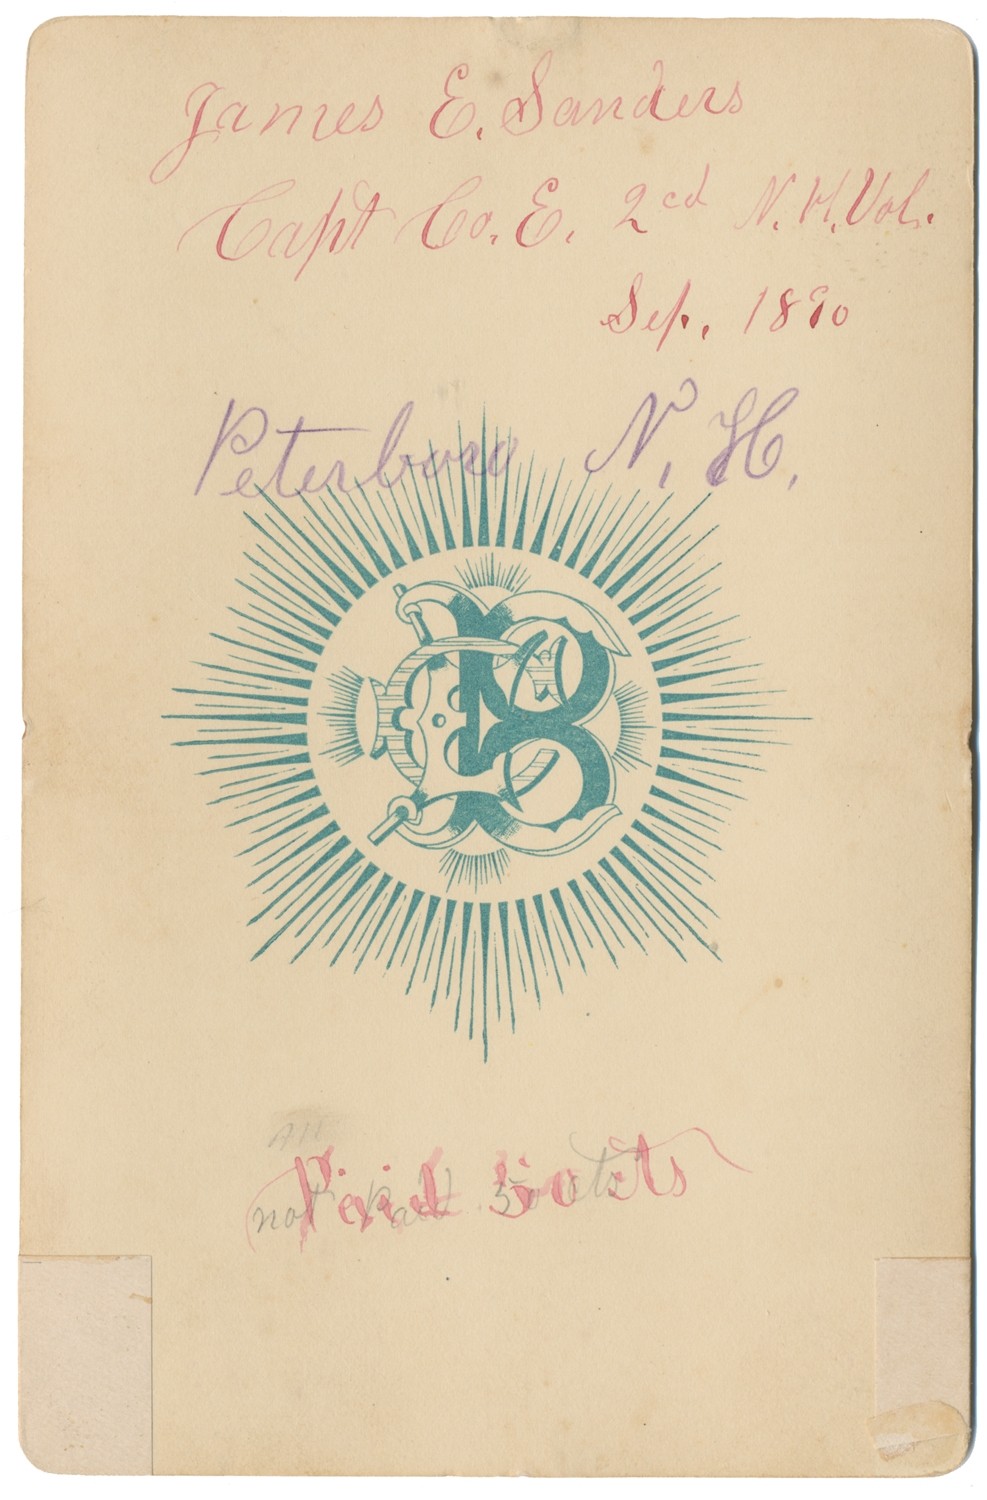 James E. Sanders
Capt Co. E. 2cd N. H. Vol.
Sep. 1890
Peterboro N. H.
All
Paid 50 cts
not Paid 50 cts